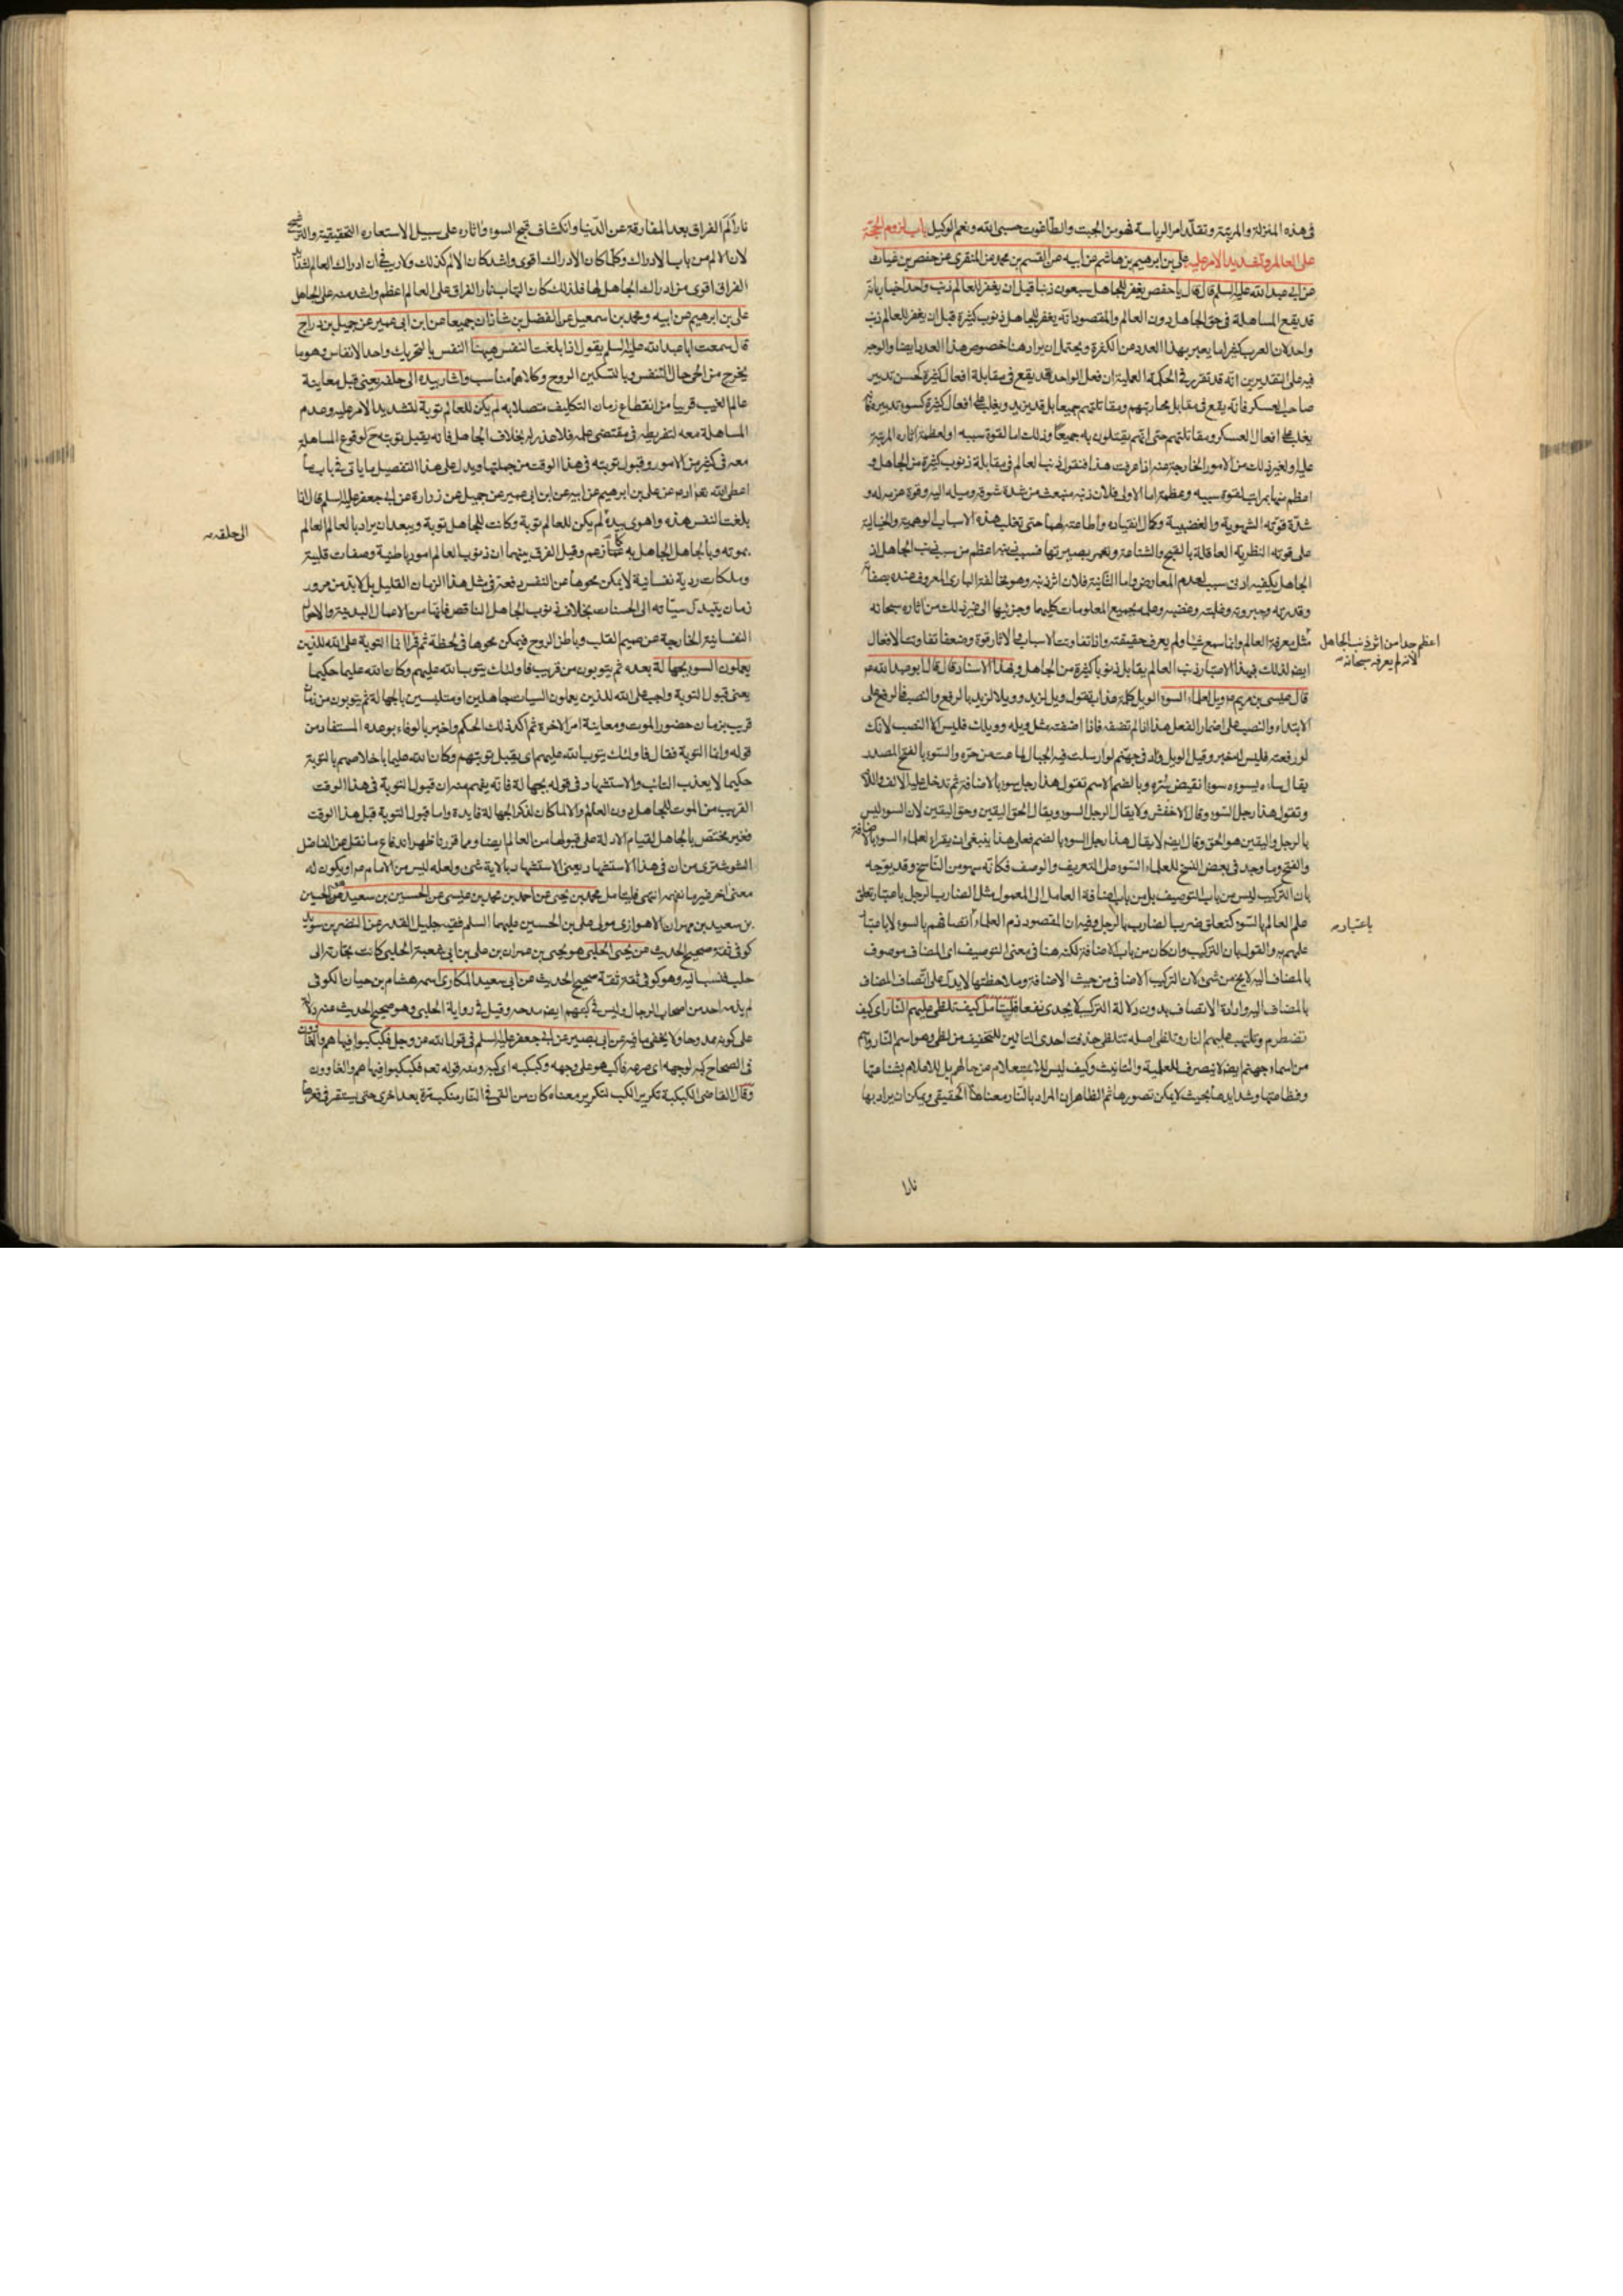 في هذه المنزلة والمرتبة وتقلد امر الرياسة فهو من الجبت والطاغوت حسبي الله ونعم الوكيل باب لزوم الحجة
على العالم وتشديد الامر عليه علي بن ابرهيم بن هاشم عن ابيه عن القسم بن محمد عن المنقري عن حفص بن غياث
عن ابي عبد الله عليه السلم قال قال يا حفص يغفر للجاهل سبعون ذنبا قبل ان يغفر للعالم ذنب واحد اخبار بانه
قد يقع المساهلة في حق الجاهل دون العالم والمقصود انه يغفر للجاهل ذنوب كثيرة قبل ان يغفر للعالم ذنب
واحد لان العرب كثيرا ما يعبر بهذا العدد عن الكثرة ويحتمل ان يراد هنا خصوص هذا العدد ايضا والوجه
فيه على التقديرين انه قد تقرر في الحكمة العملية ان فعل الواحد قد يقع في مقابلة افعال كثيرة كحسن تدبير
صاحب العسكر فانه يقع في مقابل محاربتهم ومقاتلتهم جميعا بل قد يزيد ويغلب على افعال كثيرة كسوء تدبيره
يغلب على افعال العسكر ومقاتلتهم حتى انهم يقتلون به جميعا وذلك اما لقوة سببه او لعظمة اثاره المرتبة
عليه او لغير ذلك من الامور الخارجة عنه اذا عرفت هذا فنقول ذنب العالم في مقابلة ذنوب كثيرة من الجاهل و
اعظم منها بمراتب لقوة سببه وعظمه اما الاولى فلان ذنبه منبعث من شدة شوقه وميله اليه وقوة عزمه له و
شدة قوته الشهوية والغضبية وكمال انقياده واطاعته لهما حتى تغلب هذه الاسباب الوهمية والخيالية
على قوته النظرية العاقلة بالقبح والشناعة وتعمر بصيرتها فسبب ذنبه اعظم من سبب ذنب الجاهل اذ
الجاهل يكفيه ادنى سبب لعدم المعارض واما الثانية فلان اثر ذنبه وهو مخالفة الباري المعروف عنده بصفاته
وقدرته وجبروته وغلبته وغضبه وعلمه بجميع المعلومات كليها وجزئيها الى غير ذلك من اثاره سبحانه
مثل معرفة العالم وانما سمع شيئا ولم يعرف حقيقته واذا تفاوتت الاسباب والاثار قوة وضعفا تفاوتت الافعال
اعظم جدا من اثر ذنب الجاهل
لانه لم يعرفه سبحانه
ايضا لذلك فبهذا الاعتبار ذنب العالم يقابل ذنوبا كثيرة من الجاهل وبهذا الاسناد قال قال ابو عبد الله ع
قال عيسى بن مريم ع ويل لعلماء السوء الويل كلمة عذاب تقول ويل لزيد وويلا لزيد بالرفع والنصب فالرفع على
الابتداء والنصب على اضمار الفعل هذا اذا لم تضفه فاذا اضفته مثل ويله وويلك فليس الا النصب لانك
لو رفعته فليس له خبر وقيل الويل واد في جهنم لو ارسلت فيه الجبال لماعت من حره والسوء بالفتح المصدر
يقال ساءه يسوءه سوءا نقيض سره وبالضم الاسم تقول هذا رجل سوء بالاضافة ثم تدخل عليه الالف واللام
وتقول هذا رجل السوء وقال الاخفش ولا يقال الرجل السوء ويقال الحق اليقين وحق اليقين لان السوء ليس
بالرجل واليقين هو الحق وقال ايضا لا يقال هذا رجل السوء بالضم فعلى هذا ينبغي ان يقراء لعلماء السوء بالاضافة
والفتح وما وجد في بعض النسخ للعلماء السوء على التعريف والوصف فكانه سهو من الناسخ وقد يوجه
بان التركيب ليس من باب التوصيف بل من باب اضافة العامل الى المعمول مثل الضارب الرجل باعتبار تعلق
علم العالم بالسوء كتعلق ضرب الضارب بالرجل وفيه ان المقصود ذم العلماء اتصافهم بالسوء لا باعتبار
باعتبار
علمهم به والقول بان التركيب وان كان من باب الاضافة لكنه هنا في معنى التوصيف اي المضاف موصوف
بالمضاف اليه لا يخ من شئ لان التركيب الاضافي من حيث الاضافة وملاحظتها لا يدل على اتصاف المضاف
بالمضاف اليه وارادة الاتصاف بدون دلالة التركيب لا يجدي نفعا فليتامل كيف تلظى عليهم النار اي كيف
تضطرم وتلتهب عليهم النار وتلظى اصله تتلظى حذفت احدى التائين للتخفيف من لظى وهو اسم النار واسم
من اسماء جهنم ايضا لا ينصرف للعلمية والتانيث وكيف ليس للاستعلام عن حالهم بل للاعلام بشناعتها
وفظاعتها وشدايدها بحيث لا يمكن تصورها ثم الظاهر ان المراد بالنار معناها الحقيقي ويمكن ان يراد بها
نارا
نار الم الفراق بعد المفارقة عن الدنيا وانكشاف قبح السوء واثاره على سبيل الاستعارة التحقيقية والترشيح
لان الالم من باب الادراك وكلما كان الادراك اقوى واشد كان الالم كذلك ولا ريب في ان ادراك العالم لشدايد
الفراق اقوى من ادراك الجاهل لها فلذلك كان التهاب نار الفراق على العالم اعظم واشد منه على الجاهل
علي بن ابرهيم عن ابيه ومحمد بن اسمعيل عن الفضل بن شاذان جميعا عن ابن ابي عمير عن جميل بن دراج
قال سمعت ابا عبد الله عليه السلم يقول اذا بلغت النفس ههنا النفس بالتحريك واحد الانفاس وهو ما
يخرج من الحي حال التنفس وبالتسكين الروح وكلاهما مناسب واشار بيده الى حلقه يعني قبل معاينة
عالم الغيب قريبا من انقطاع زمان التكليف متصلا به لم يكن للعالم توبة لتشديد الامر عليه وعدم
المساهلة معه لتفريطه في مقتضى علمه فلا عذر له بخلاف الجاهل فانه يقبل توبته ح لوقوع المساهلة
معه في كثير من الامور وقبول توبته في هذا الوقت من جملتها ويدل على هذا التفصيل ما ياتي في باب ما
اعطى الله تع ادم عن علي بن ابرهيم عن ابيه عن ابن ابي عمير عن جميل عن زرارة عن ابي جعفر عليه السلم قال اذا
بلغت النفس هذه واهوى بيده لم يكن للعالم توبة وكانت للجاهل توبة ويبعد ان يراد بالعالم العالم
الى حلقه
بموته وبالجاهل الجاهل به كما زعم وقيل الفرق بينهما ان ذنوب العالم امور باطنية وصفات قلبية
وملكات ردية نفسانية لا يمكن محوها عن النفس دفعة في مثل هذا الزمان القليل بل لا بد من مرور
زمان يتبدل سيئاته الى الحسنات بخلاف ذنوب الجاهل الناقص فانها من الاعمال البدنية والاحوال
النفسانية الخارجة عن صميم القلب وباطن الروح فيمكن محوها في لحظة ثم قرا انما التوبة على الله للذين
يعملون السوء بجهالة بعده ثم يتوبون من قريب فاولئك يتوب الله عليهم وكان الله عليما حكيما
يعني قبول التوبة واجب على الله للذين يعملون السيئات جاهلين او متلبسين بالجهالة ثم يتوبون من زمان
قريب بزمان حضور الموت ومعاينة امر الاخرة ثم اكد ذلك الحكم واخبر بالوفاء بوعده المستفاد من
قوله وانما التوبة فقال فاولئك يتوب الله عليهم اي يقبل توبتهم وكان الله عليما باخلاصهم بالتوبة
حكيما لا يعذب التائب والاستشهاد في قوله بجهالة فانه يفهم منه ان قبول التوبة في هذا الوقت
القريب من الموت للجاهل دون العالم والا لما كان لذكر الجهالة فايدة واما قبول التوبة قبل هذا الوقت
فغير مختص بالجاهل لقيام الادلة على قبولها من العالم ايضا ومما قررنا ظهر اندفاع ما نقل عن الفاضل
الشوشتري من ان في هذا الاستشهاد يعني الاستشهاد بالاية شئ ولعله ليس من الامام ع او يكون له
معنى اخر غير ما نفهمه انتهى فليتامل محمد بن يحيى عن احمد بن محمد بن عيسى عن الحسين بن سعيد هو الحسين
بن سعيد بن مهران الاهوازي مولى علي بن الحسين عليهما السلم فقيه جليل القدر عن النضر بن سويد
كوفي ثقة صحيح الحديث عن يحيى الحلبي هو يحيى بن عمران بن علي بن ابي شعبة الحلبي كانت تجارته الى
حلب فنسب اليه وهو كوفي ثقة ثقة صحيح الحديث عن ابي سعيد المكاري اسمه هشام بن حيان الكوفي
لم يذمه احد من اصحاب الرجال وليس في كتبهم ايضا مدحه وقيل في رواية الحلبي وهو صحيح الحديث عنه دلالة
على كونه ممدوحا ولا يخفى ما فيه عن ابي بصير عن ابي جعفر عليه السلم في قول الله عز وجل فكبكبوا فيها هم والغاون
في الصحاح كبه لوجهه اي صرعه فاكب هو على وجهه وكبكبه اي كبه ومنه قوله تعم فكبكبوا فيها هم والغاوون
وقال القاضي الكبكبة تكرير الكب لتكرير معناه كان من القي في النار ينكب مرة بعد اخرى حتى يستقر في قعرها